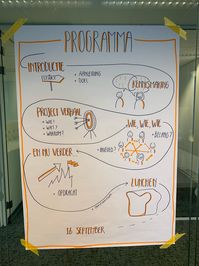 PROGRAMMA
INTRODUCTIE
• AANLEIDING
• DOEL
KENNISMAKING
PROJECT VERHAAL
• WIE?
• WAT?
• WAAROM?
WIE, WIE, WIE
• INVLOED?
• BELANG?
EN NU VERDER
• OPDRACHT
LUNCHEN
16 SEPTEMBER